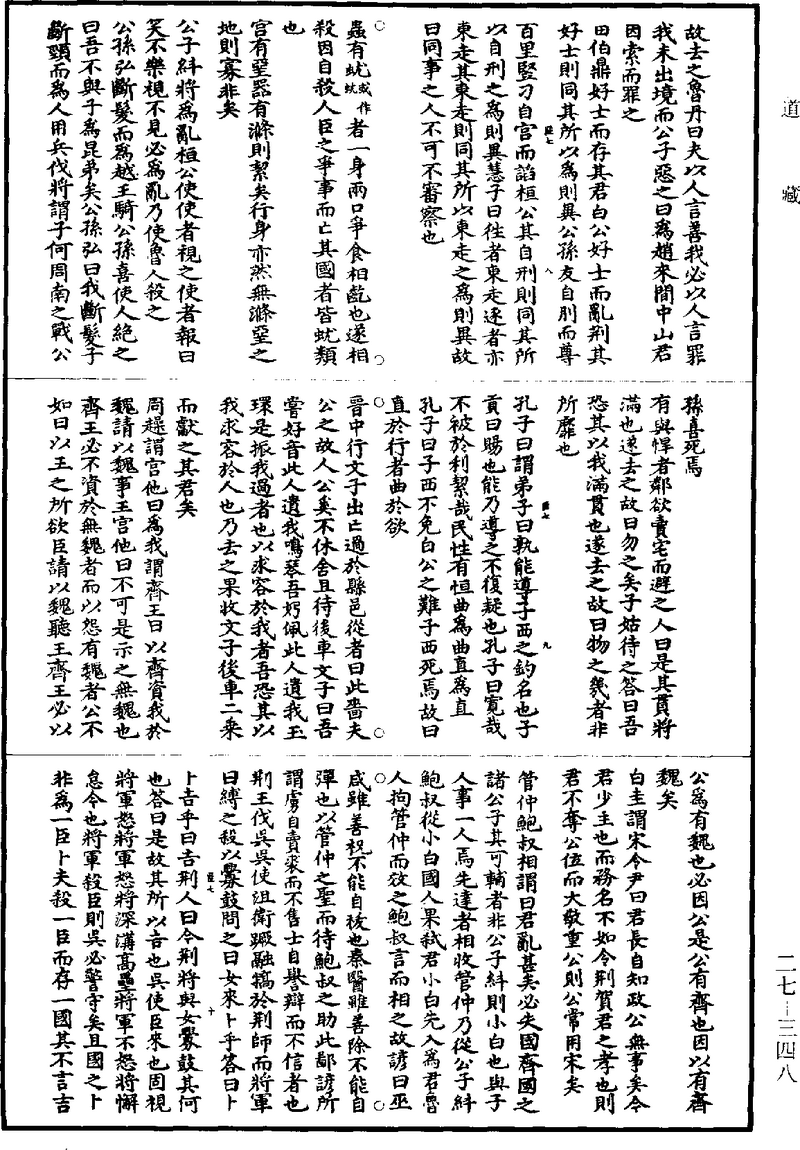 道藏
故去之魯丹曰夫以人言善我必以人言罪
我未出境而公子惡之曰為趙來間中山君
因索而罪之
田伯鼎好士而存其君白公好士而亂荆其
好士則同其所以為則異公孫友自刖而尊
百里豎刁自宮而諂桓公其自刑則同其所
以自刑之為則異慧子曰徃者東走逐者亦
東走其東走則同其所以東走之為則異故
曰同事之人不可不審察也
蟲有虵或作蚘者一身兩口爭食相齕也遂相
殺因自殺人臣之爭事而亡其國者皆虵類
也
宮有堊器有滌則絜矣行身亦然無滌堊之
地則寡非矣
公子糾將為亂桓公使使者視之使者報曰
笑不樂視不見必為亂乃使魯人殺之
公孫弘斷髮而為越王騎公孫喜使人絕之
曰吾不與子為昆弟矣公孫弘曰我斷髮子
斷頸而為人用兵伐將謂子何周南之戰公
孫喜死焉
有與悍者鄰欲賣宅而避之人曰是其貫將
滿也遂去之故曰勿之矣子姑待之答曰吾
恐其以我滿貫也遂去之故曰物之幾者非
所靡也
孔子曰謂弟子曰孰能導子西之釣名也子
貢曰賜也能乃導之不復疑也孔子曰寬哉
不被於利絜哉民性有恒曲為曲直為直
孔子曰子西不免白公之難子西死焉故曰
直於行者曲於欲
晉中行文子出亡過於縣邑從者曰此嗇夫
公之故人公奚不休舍且待後車文子曰吾
嘗好音此人遺我鳴琴吾好佩此人遺我玉
環是振我過者也以求容於我者吾恐其以
我求容於人也乃去之果收文子後車二乘
而獻之其君矣
周趮謂宮他曰為我謂齊王曰以齊資我於
魏請以魏事王宮他曰不可是示之無魏也
齊王必不資於無魏者而以怨有魏者公不
如曰以王之所欲臣請以魏聽王齊王必以
公為有魏也必因公是公有齊也因以有齊
魏矣
白圭謂宋令尹曰君長自知政公無事矣今
君少主也而務名不如令荆賀君之孝也則
君不奪公位而大敬重公則公常用宋矣
管仲鮑叔相謂曰君亂甚矣必失國齊國之
諸公子其可輔者非公子糾則小白也與子
人事一人焉先達者相收管仲乃從公子糾
鮑叔從小白國人果弑君小白先入為君魯
人拘管仲而效之鮑叔言而相之故諺曰巫
咸雖善祝不能自祓也秦醫雖善除不能自
彈也以管仲之聖而待鮑叔之助此鄙諺所
謂虜自賣裘而不售士自譽辯而不信者也
荆王伐吳吳使沮衛蹶融犒於荆師而將軍
曰縛之殺以釁鼓問之曰女來卜乎答曰卜
卜吉乎曰吉荆人曰今荆將與女釁鼓其何
也答曰是故其所以吉也吳使臣來也固視
將軍怒將軍怒將深溝髙壘將軍不怒將懈
怠今也將軍殺臣則吳必警守矣且國之卜
非為一臣卜夫殺一臣而存一國其不言吉
二七—三四八